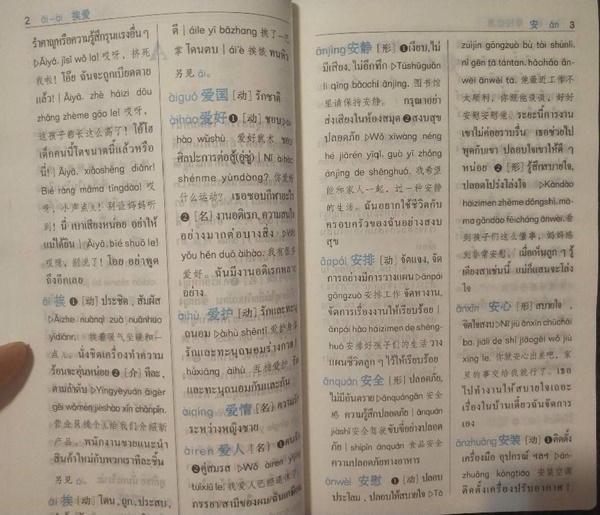 2 āi–ài 挨爱
รำคาญหรือความรู้สึกรุนแรงอื่นๆ
▷Āiyā, jǐsǐ wǒ la! 哎呀，挤死
我啦！ โอ๊ย ฉันจะถูกเบียดตาย
แล้ว! | Āiyā, zhè háizi dōu
zhǎng zhème gāo le! 哎呀，
这孩子都长这么高了！ โอ้โฮ
เด็กคนนี้โตขนาดนี้แล้วหรือ
นี่! | Āiyā, xiǎoshēng diǎnr!
Bié ràng māma tīngdào! 哎
呀，小声点儿！别让妈妈听
到！ นี่ เบาเสียงหน่อย อย่าให้
แม่ได้ยิน | Āiyā, bié shuō le!
哎呀，别说了！ โอย อย่าพูด
ถึงอีกเลย
āi 挨 ❶ [动] ประชิด, สัมผัส
▷Āizhe nuǎnqì zuò nuǎnhuo
yīdiǎnr. 挨着暖气坐暖和一
点儿。 นั่งชิดเครื่องทำความ
ร้อนจะอุ่นหน่อย ❷ [介] ทีละ,
ตามลำดับ ▷Yíngyèyuán āigèr
gěi wǒmen jièshào xīn chǎnpǐn.
营业员挨个儿给我们介绍新
产品。 พนักงานขายแนะนำ
สินค้าใหม่กับพวกเราทีละชิ้น
另见 ái。
ái 挨 [动] โดน, ถูก, ประสบ,
ตี | áile yī bāzhang 挨了一巴
掌 โดนตบ | ái'è 挨饿 ทนหิว
另见 āi。
àiguó 爱国 [动] รักชาติ
àihào 爱好 ❶ [动] ชอบ ▷ài
hào wǔshù. 爱好武术 ชอบ
ศิลปะการต่อสู้(อู่ซู่) | Nǐ àihào
shénme yùndòng? 你爱好
什么运动？ เธอชอบกีฬาอะไร
❷ [名] งานอดิเรก, ความสนใจ
อย่างมากต่อบางสิ่ง ▷Wǒ
yǒu hěn duō àihào. 我有很多
爱好。 ฉันมีงานอดิเรกหลาย
อย่าง
àihù 爱护 [动] รักและทะนุ
ถนอม ▷àihù shēntǐ 爱护身体
รักและทะนุถนอมร่างกาย |
hùxiāng àihù 互相爱护 รัก
และทะนุถนอมกันและกัน
àiqíng 爱情 [名] ความรัก
ระหว่างหญิงชาย
àiren 爱人 [名] ❶คนรัก
❷คู่สมรส ▷Wǒ àiren yǐjīng
tuìxiū le. 我爱人已经退休了。
ภรรยา/สามีของผม/ฉันเกษียณ
安 ān 3
ānjìng 安静 [形] ❶เงียบ, ไม่
มีเสียง, ไม่อึกทึก ▷Túshūguǎn
lǐ qǐng bǎochí ānjìng. 图书馆
里请保持安静。 กรุณาอย่า
ส่งเสียงในห้องสมุด ❷สงบสุข
ปลอดภัย ▷Wǒ xīwàng néng
hé jiārén yīqǐ, guò yī zhǒng
ānjìng de shēnghuó. 我希望
能和家人一起，过一种安静
的生活。 ฉันอยากใช้ชีวิตกับ
ครอบครัวของฉันอย่างสงบ
สุข
ānpái 安排 [动] จัดแจง, จัด
การอย่างมีการวางแผน ▷ānpái
gōngzuò 安排工作 จัดหางาน,
จัดการเรื่องงานให้เรียบร้อย |
ānpái hǎo háizimen de shēng-
huó 安排好孩子们的生活 วาง
แผนชีวิตลูกๆ ไว้ให้เรียบร้อย
ānquán 安全 [形] ปลอดภัย,
ไม่มีอันตราย ▷ānquángǎn 安全
感 ความรู้สึกปลอดภัย | ānquán
jiàshǐ 安全驾驶 ขับขี่อย่างปลอด
ภัย | shípǐn ānquán 食品安全
ความปลอดภัยทางอาหาร
ānwèi 安慰 ❶ [动] ปลอบ
ประโลม, ปลอบให้สบายใจ ▷Tā
zuìjìn gōngzuò bù tài shùnlì,
nǐ gēn tā tántan, hǎohāo ān-
wèi ānwèi tā. 他最近工作不
大顺利，你跟他谈谈，好好
安慰安慰他。 ระยะนี้การงาน
เขาไม่ค่อยราบรื่น เธอช่วยไป
พูดกับเขา ปลอบใจเขาให้ดี ๆ
หน่อย ❷ [形] รู้สึกสบายใจ,
ปลอดโปร่งโล่งใจ ▷Kàndào
háizimen zhème dǒngshì, mā-
ma gǎndào fēicháng ānwèi. 看
到孩子们这么懂事，妈妈感
到非常安慰。 เมื่อเห็นลูก ๆ รู้
เดียงสาเช่นนี้ แม่ก็แสนจะโล่ง
ใจ
ānxīn 安心 [形] สบายใจ,
จิตใจสงบ ▷Nǐ jiù ānxīn chūchāi
ba, jiāli de shì jiāogěi wǒ jiù
xíng le. 你就安心出差吧，家
里的事交给我就行了。 เธอ
ไปทำงานให้สบายใจเถอะ
เรื่องในบ้านเดี๋ยวฉันจัดการ
เอง
ānzhuāng 安装 [动] ติดตั้ง
เครื่องมือ อุปกรณ์ ฯลฯ ▷ān-
zhuāng kōngtiáo 安装空调
ติดตั้งเครื่องปรับอากาศ |